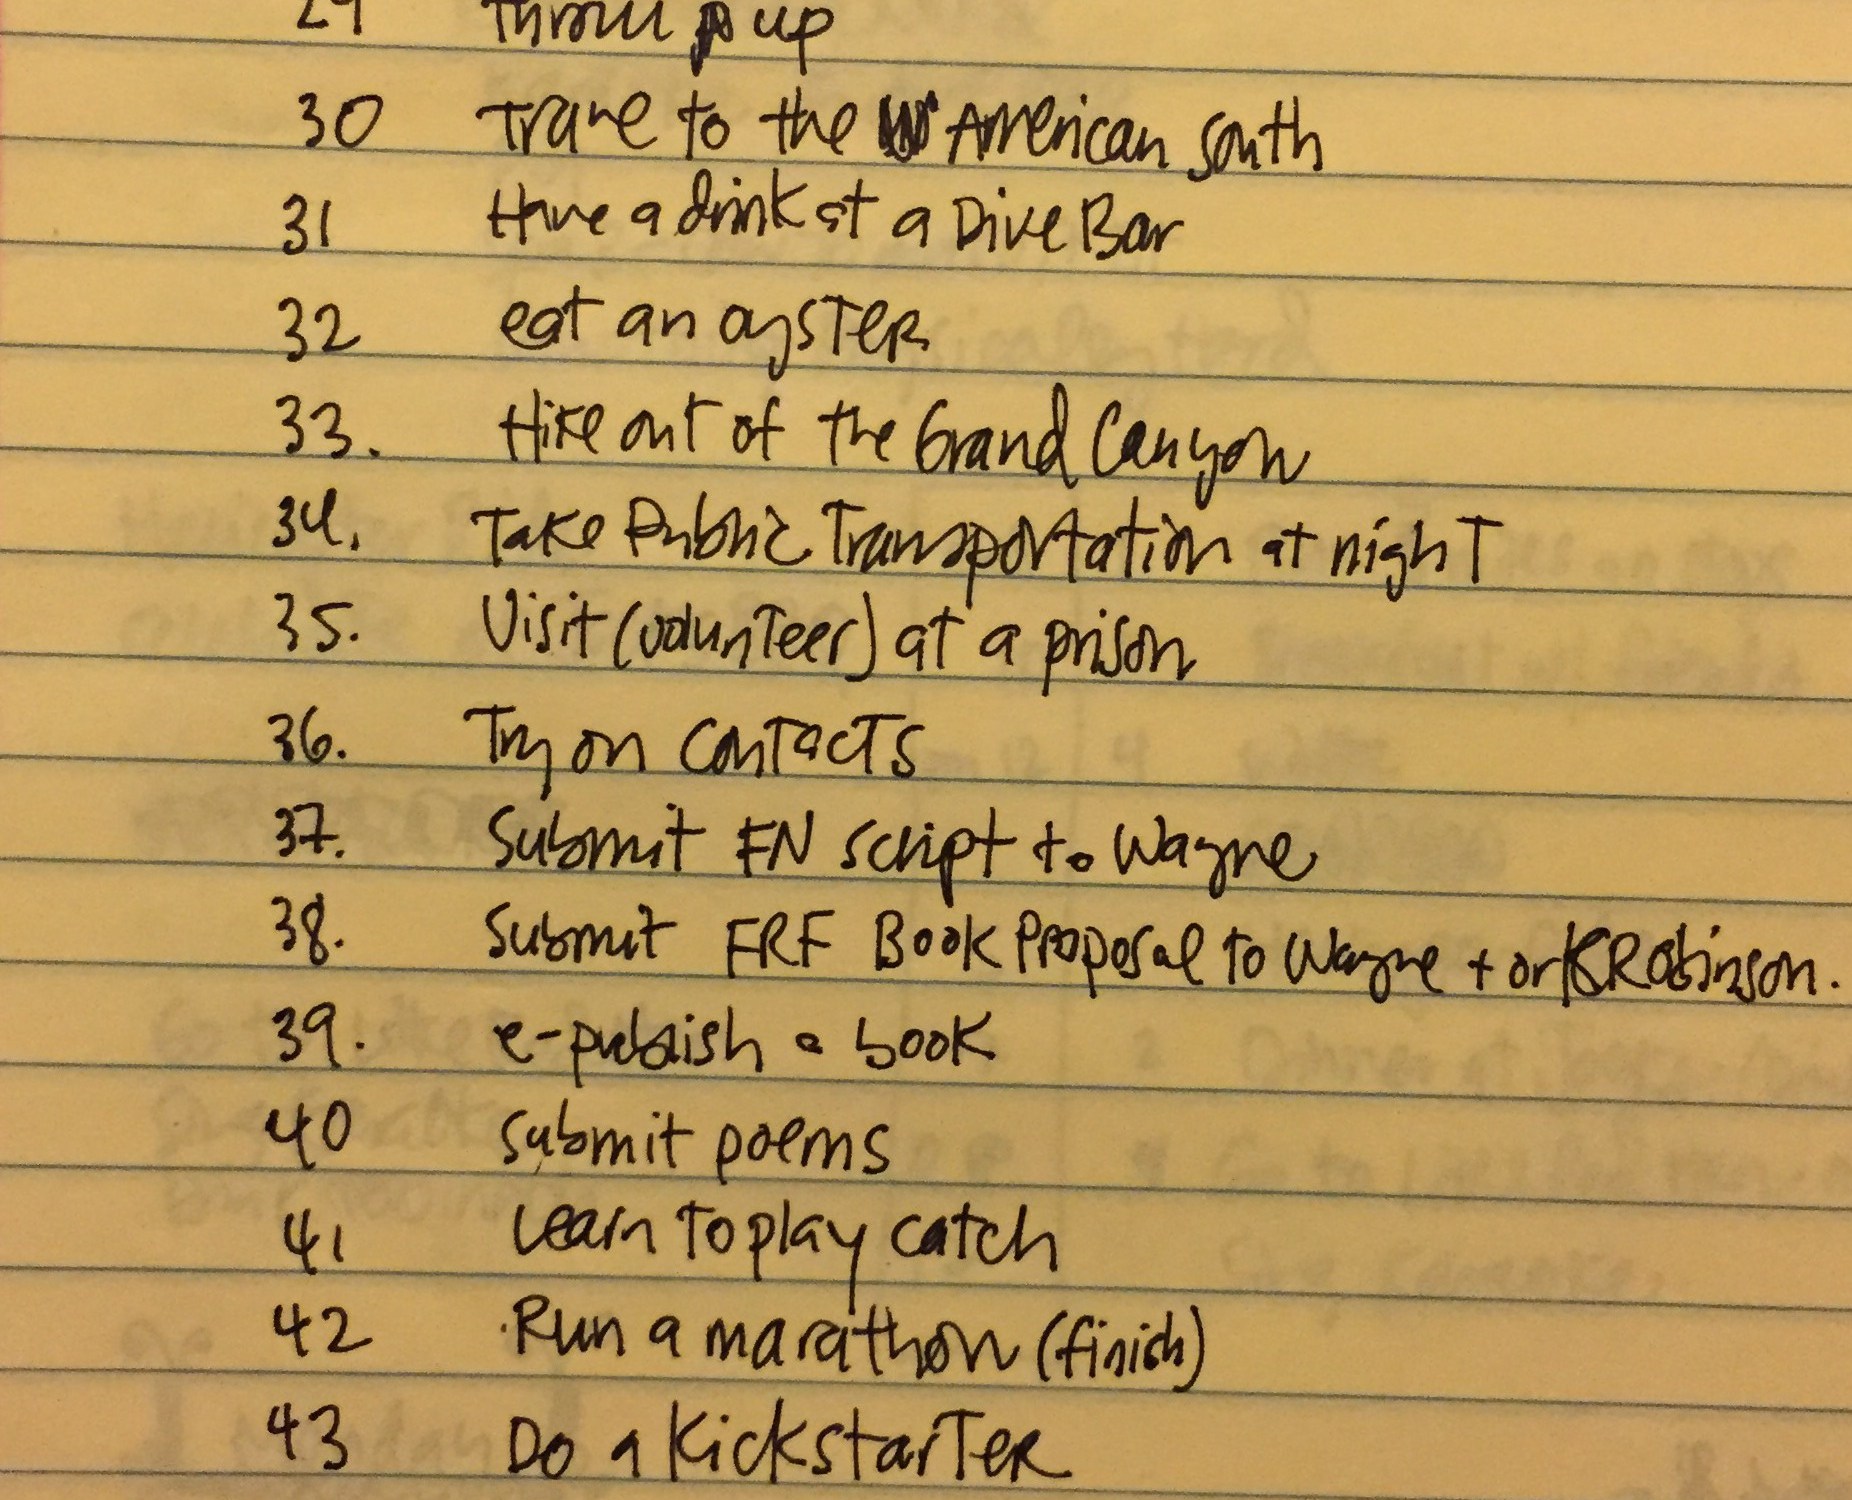 29 Throw up
30 Trave to the American South
31 Have a drink at a Dive Bar
32 eat an oyster
33. Hike out of the Grand Canyon
34. Take Public Transportation at night
35. Visit (volunteer) at a prison
36. Try on contacts
37. Submit FN script to Wayne
38. Submit FRF Book Proposal to Wayne + or K Robinson.
39. e-publish a book
40 submit poems
41 Learn to play catch
42 Run a marathon (finish)
43 Do a Kickstarter